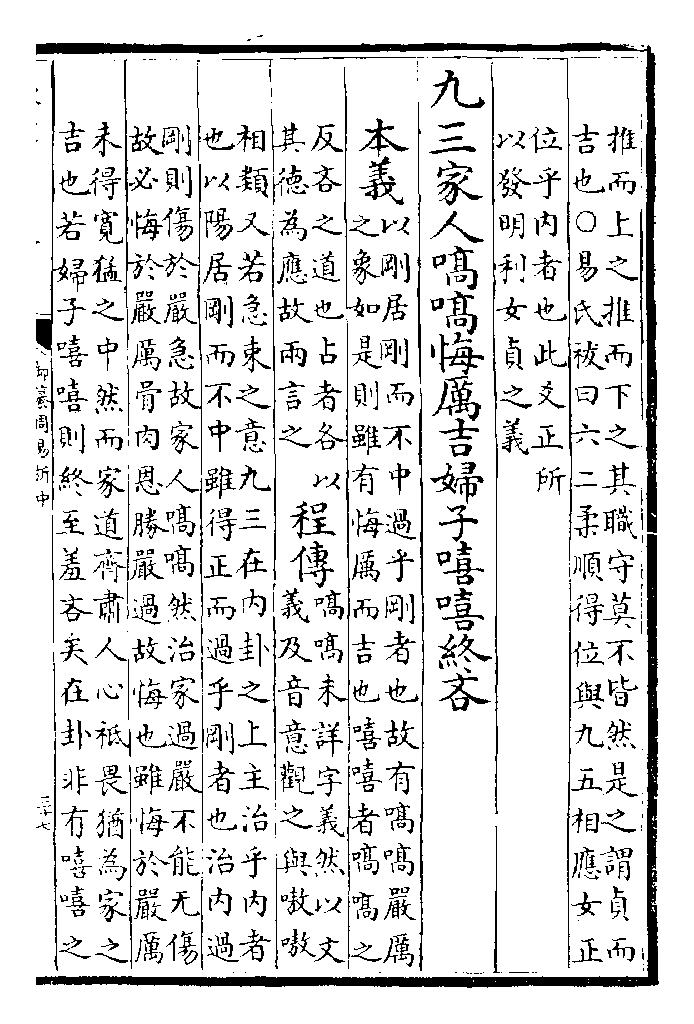 推而上之推而下之其職守莫不皆然是之謂貞而
吉也○易氏祓曰六二柔順得位與九五相應女正
位乎内者也此爻正所
以發明利女貞之義
九三家人嗃嗃悔厲吉婦子嘻嘻終吝
本義
以剛居剛而不中過乎剛者也故有嗃嗃嚴厲
之象如是則雖有悔厲而吉也嘻嘻者嗃嗃之
反吝之道也占者各以
其德為應故兩言之
程傳
嗃嗃未詳字義然以文
義及音意觀之與嗷嗷
相類又若急束之意九三在内卦之上主治乎内者
也以陽居剛而不中雖得正而過乎剛者也治内過
剛則傷於嚴急故家人嗃嗃然治家過嚴不能无傷
故必悔於嚴厲骨肉恩勝嚴過故悔也雖悔於嚴厲
未得寛猛之中然而家道齊肅人心祗畏猶為家之
吉也若婦子嘻嘻則終至羞吝矣在卦非有嘻嘻之
御纂周易折中
三十七